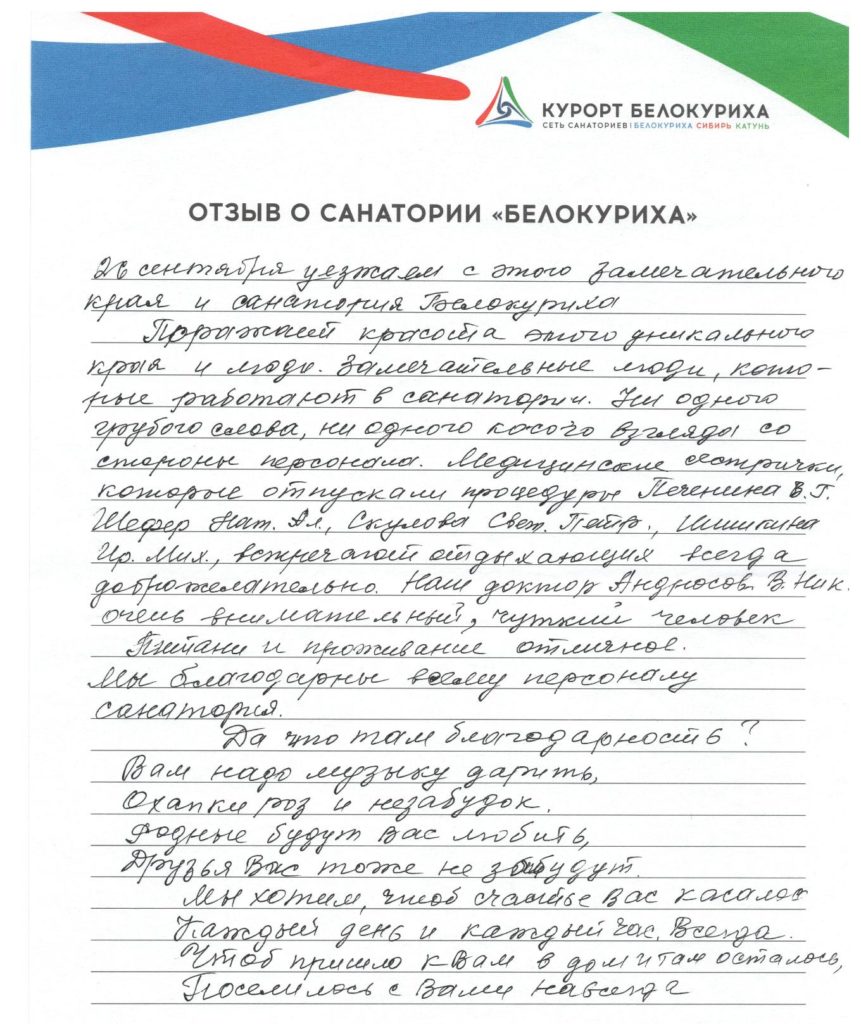 КУРОРТ БЕЛОКУРИХА
СЕТЬ САНАТОРИЕВ | БЕЛОКУРИХА СИБИРЬ КАТУНЬ
ОТЗЫВ О САНАТОРИИ «БЕЛОКУРИХА»
26 сентября уезжаем с этого замечательного
края и санатория Белокуриха
Поражает красота этого уникального
края и люди. Замечательные люди, кото-
рые работают в санатории. Ни одного
грубого слова, ни одного косого взгляда со
стороны персонала. Медицинские сестрички,
которые отпускали процедуры Печенина В.Г.
Шефер Нат. Ал., Скулова Свет. Петр., Шишкина
Ир. Мих., встречают отдыхающих всегда
доброжелательно. Наш доктор Андросов В. Ник.
очень внимательный, чуткий человек
Питани и проживание отличное.
Мы благодарны всему персоналу
санатория.
Да что там благодарность?
Вам надо музыку дарить,
Охапки роз и незабудок.
Родные будут Вас любить,
Друзья Вас тоже не забудут.
Мы хотим, чтоб счастье Вас касалос
Каждый день и каждый час, Всегда.
Чтоб пришло к Вам в дом и там осталось,
Поселилось с Вами навсегда